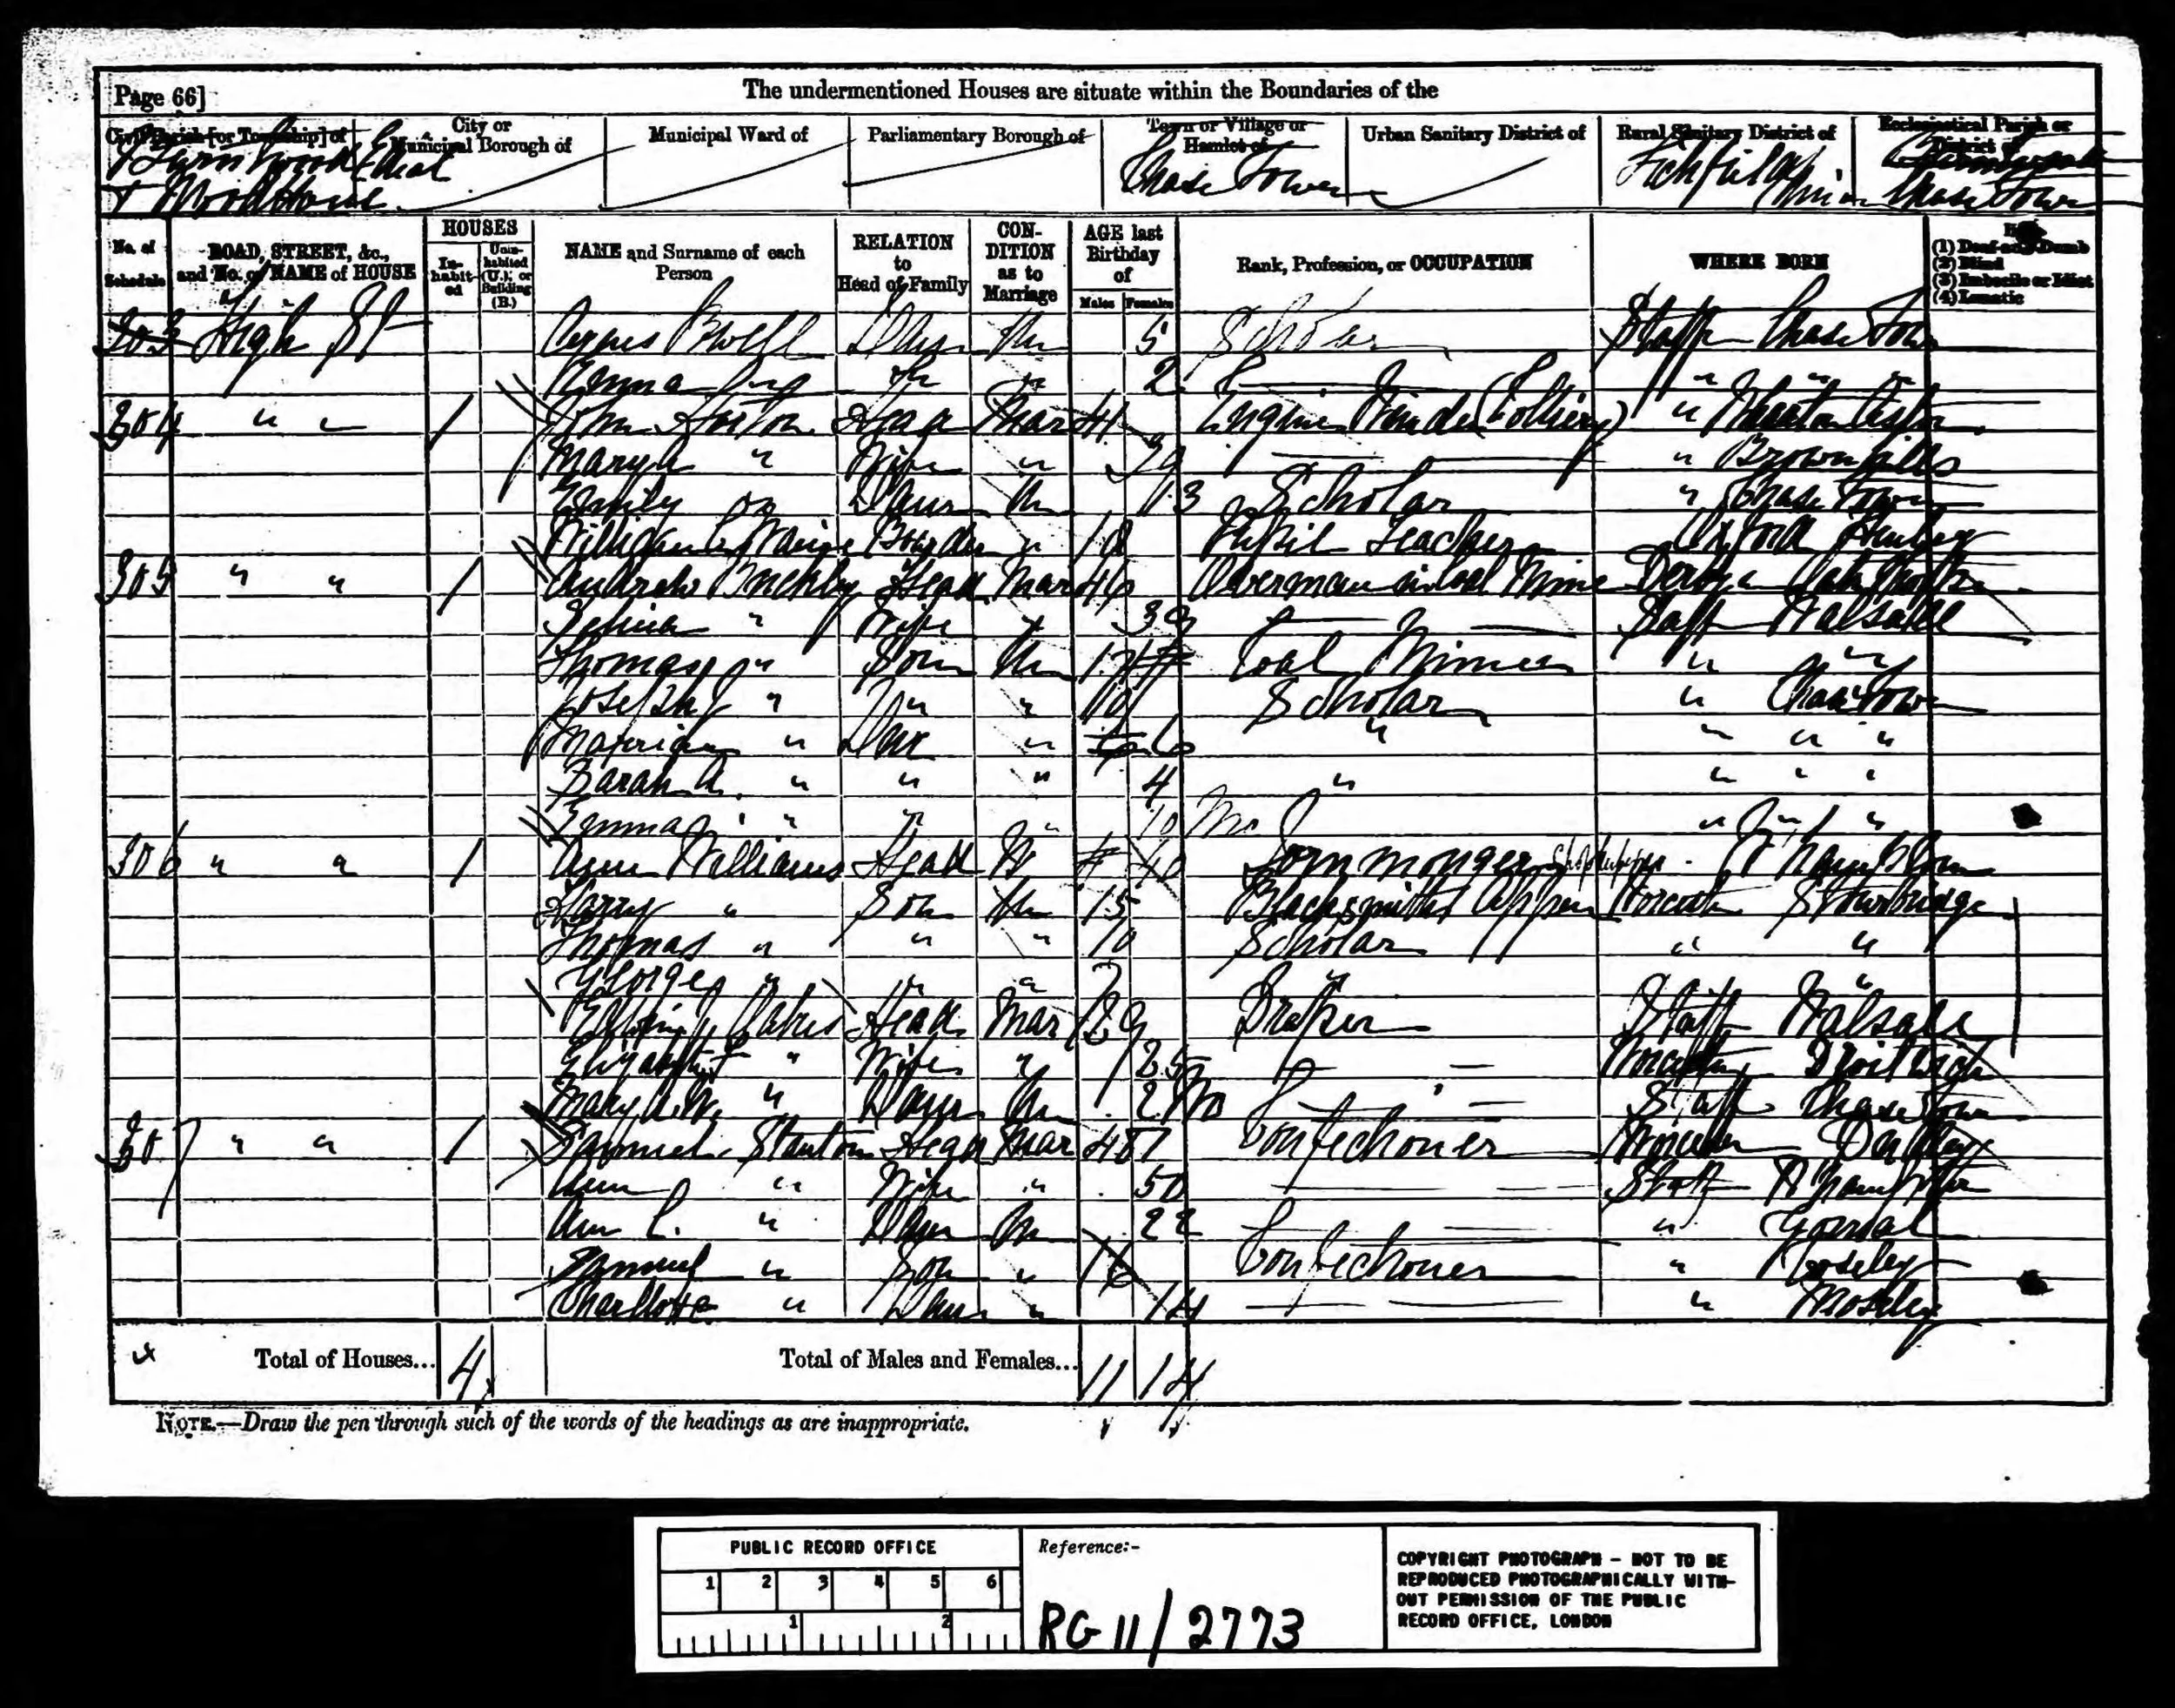 Page 66]
The undermentioned Houses are situate within the Boundaries of the
Civil Parish [or Township] of
City or Municipal Borough of
Municipal Ward of
Parliamentary Borough of
Town or Village or Hamlet of
Urban Sanitary District of
Rural Sanitary District of
Ecclesiastical Parish or District of
Burntwood
& Woodhouse
Chase Town
Lichfield Union
Chase Town
No. of Schedule
ROAD, STREET, &c., and No. or NAME of HOUSE
HOUSES
In-habit-ed
Unin-habited (U.), or Building (B.)
NAME and Surname of each Person
RELATION to Head of Family
CON-DITION as to Marriage
AGE last Birthday of
Males Females
Rank, Profession, or OCCUPATION
WHERE BORN
(1) Deaf-and-Dumb
(2) Blind
(3) Imbecile or Idiot
(4) Lunatic
303 High St Daur Un 5 Scholar Staff Chase Town
Emma " " " 2 " " "
304 " " 1 John Horton Head Mar 41 Engine Winder (Colliery) " Wheaton Aston
Mary A " Wife " 39 " Brownhills
Emily " Daur Un 13 Scholar " Chase Town
William Boarder " 18 Pupil Teacher Oxford
305 " " 1 Andrew Head Mar 46 Overman in Coal Mine Derby
Selina " Wife " 39 Staff Walsall
Thomas " Son Un 17 Coal Miner " "
Joseph " " " 10 Scholar " Chase Town
" Daur " 6 " " " "
Sarah A. " " " 4 " " " "
Emma " " " " " "
306 " " 1 Ann Williams Head W 40 Shopkeeper
Harry " Son Un 15 Blacksmiths Appren Worcester Stourbridge
Thomas " " " 10 Scholar " "
George " " " 7 " "
Head Mar 29 Draper Staff Walsall
Elizabeth " Wife " 25 Worcester Droitwich
Mary A. W. " Daur Un 2 Mo Staff Chase Town
307 " " 1 Samuel Stanton Head Mar 48 Confectioner Worcester Dudley
Ann " Wife " 50 Staff
Ann L. " Daur Un 22 " Gornal
Samuel " Son " 16 Confectioner " Coseley
Charlotte " Daur " 14 " Moseley
Total of Houses... 4
Total of Males and Females... 11 14
NOTE.—Draw the pen through such of the words of the headings as are inappropriate.
PUBLIC RECORD OFFICE
1 2 3 4 5 6
1 2
Reference:-
RG 11/2773
COPYRIGHT PHOTOGRAPH - NOT TO BE
REPRODUCED PHOTOGRAPHICALLY WITH-
OUT PERMISSION OF THE PUBLIC
RECORD OFFICE, LONDON